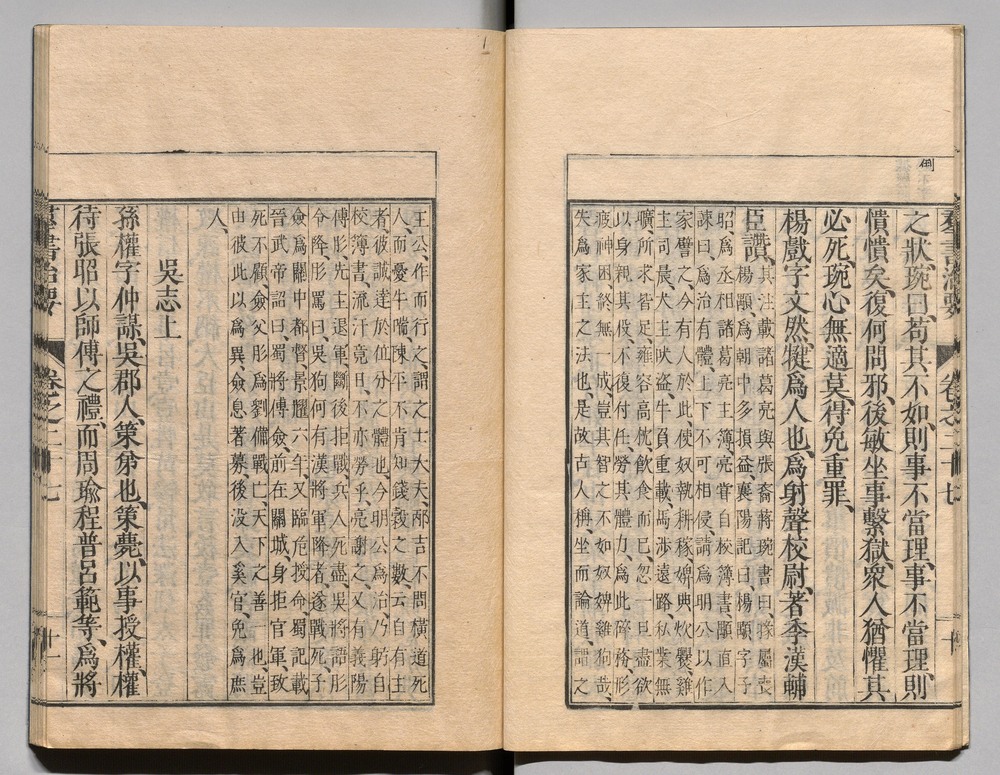 羣書治要 卷之二十七 十
之狀琬曰、苟其不如則事不當理、事不當理、則
憒憒矣、復何問邪、後敏坐事繫獄、衆人猶懼其
必死、琬心無適莫、得免重罪、
楊戲字文然、犍爲人也、爲射聲校尉、著季漢輔
臣讚、其注載諸葛亮與張裔蔣琬書曰、掾屬喪
楊顒、爲朝中多損益、襄陽記曰、楊顒字子
昭、爲丞相諸葛亮主簿、亮嘗自校簿書、顒直入
諫曰、爲治有體、上下不可相侵、請爲明公以作
家譬之、今有人於此、使奴執耕稼、婢典炊爨、雞
主司晨、犬主吠盜、牛負重載、馬渉遠路、私業無
曠、所求皆足、雍容高枕、飲食而已、忽一旦盡欲
以身親其役、不復付任、勞其體力、爲此碎務、形
疲神困、終無一成、豈其智之不如奴婢雞狗哉、
失爲家主之法也、是故古人稱坐而論道、謂之
王公、作而行之、謂之士大夫、邴吉不問橫道死
人、而憂牛喘、陳平不肯知錢穀之數、云自有主
者、彼誠達於位分之體也、今明公爲治、乃躬自
校簿書、流汗竟日、不亦勞乎、亮謝之、又有義陽
傅肜、先主退軍、斷後拒戰、兵人死盡、吳將語肜
令降、肜罵曰、吳狗何有漢將軍降者、遂戰死、子
僉爲關中都督、景耀六年、又臨危授命、蜀記載
晉武帝詔曰、蜀將傅僉、前在關城、身拒官軍、致
死不顧、僉父肜爲劉備戰亡、天下之善一也、豈
由彼此以爲異、僉息著募後沒入奚官、免爲庶
人、
吳志上
孫權字仲謀、吳郡人、策弟也、策薨、以事授權、權
待張昭以師傅之禮、而周瑜程普呂範等、爲將
羣書治要 卷之二十七 十一